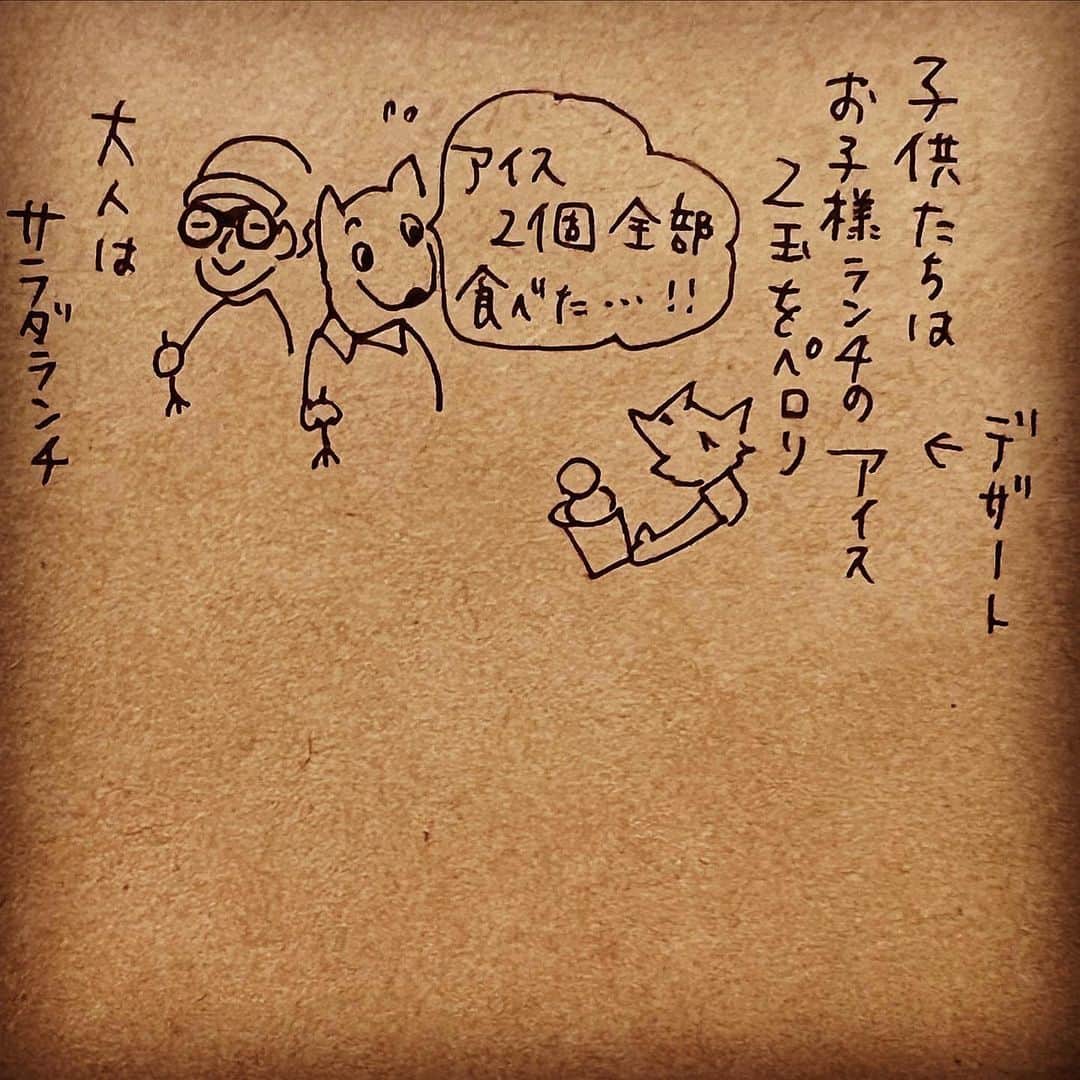 デザート
↓
子供たちは
お子様ランチのアイス
2玉をペロリ
アイス
2個全部
食べた…!!
大人は
サラダランチ